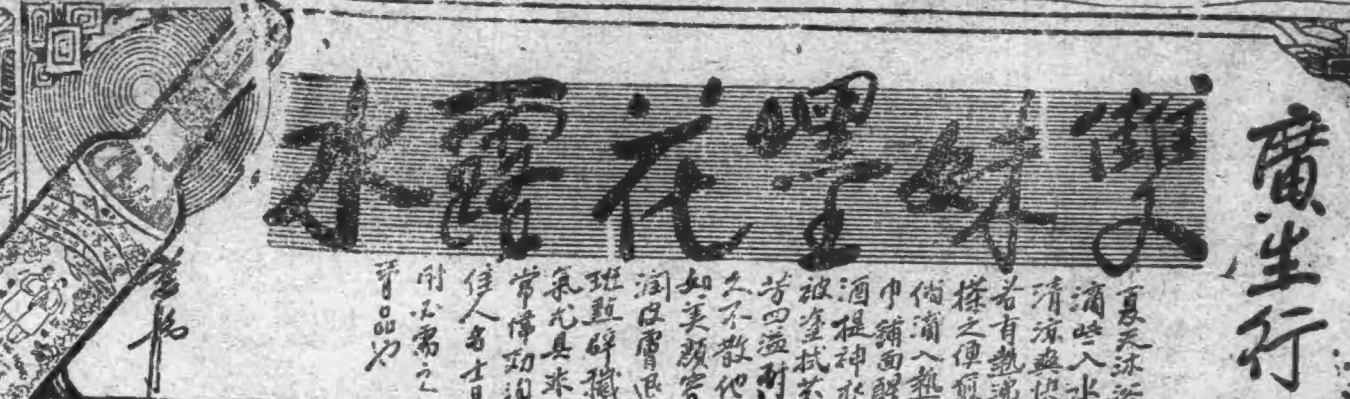 廣生行
雙妹嘜花露水
夏天沐浴
滴些入水
清涼無比
若有熱沸
搽之便愈
倘滴入熱
巾鋪面醒
酒提神水
被塗拭芬
芳四溢耐
久不散他
如美顏容
潤皮膚退
班點辟穢
氣尤具非
常偉効洵
佳人名士日
用必需之
寶品也